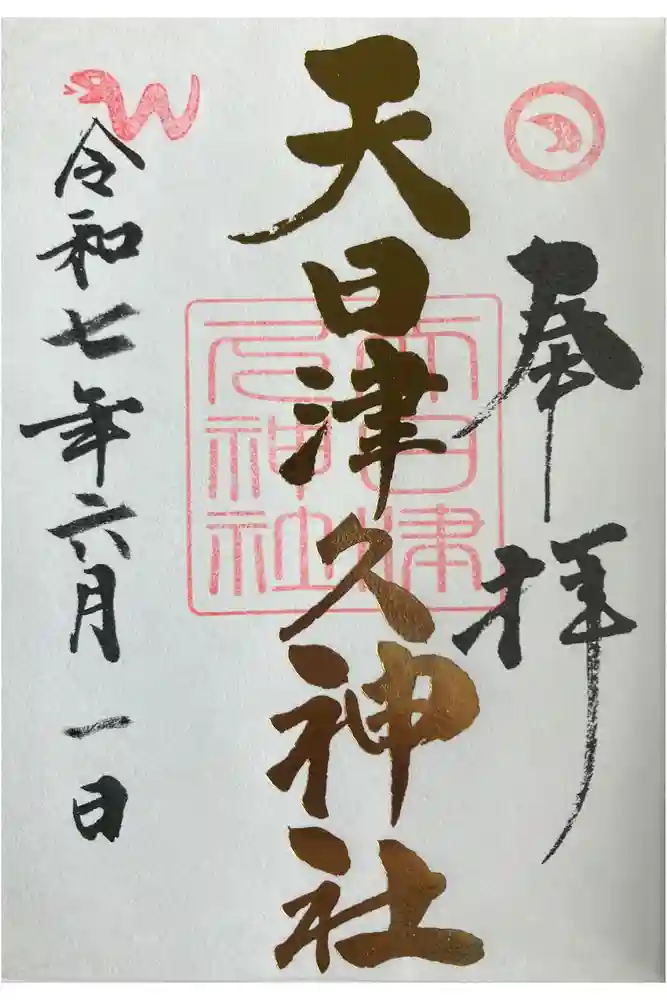 奉拝
天日津久神社
天日津
久神社
令和七年六月一日